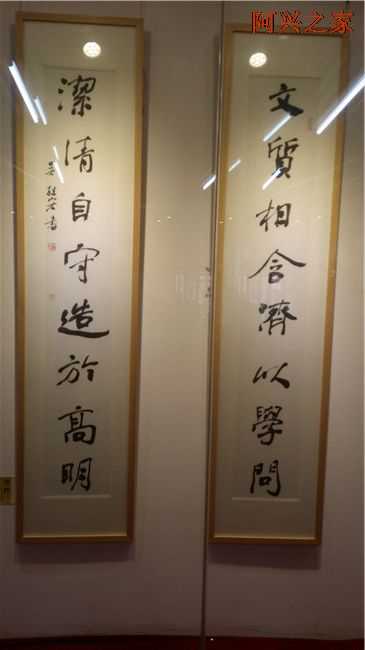 阿兴之家
文質相含濟以學問
潔清自守造於高明